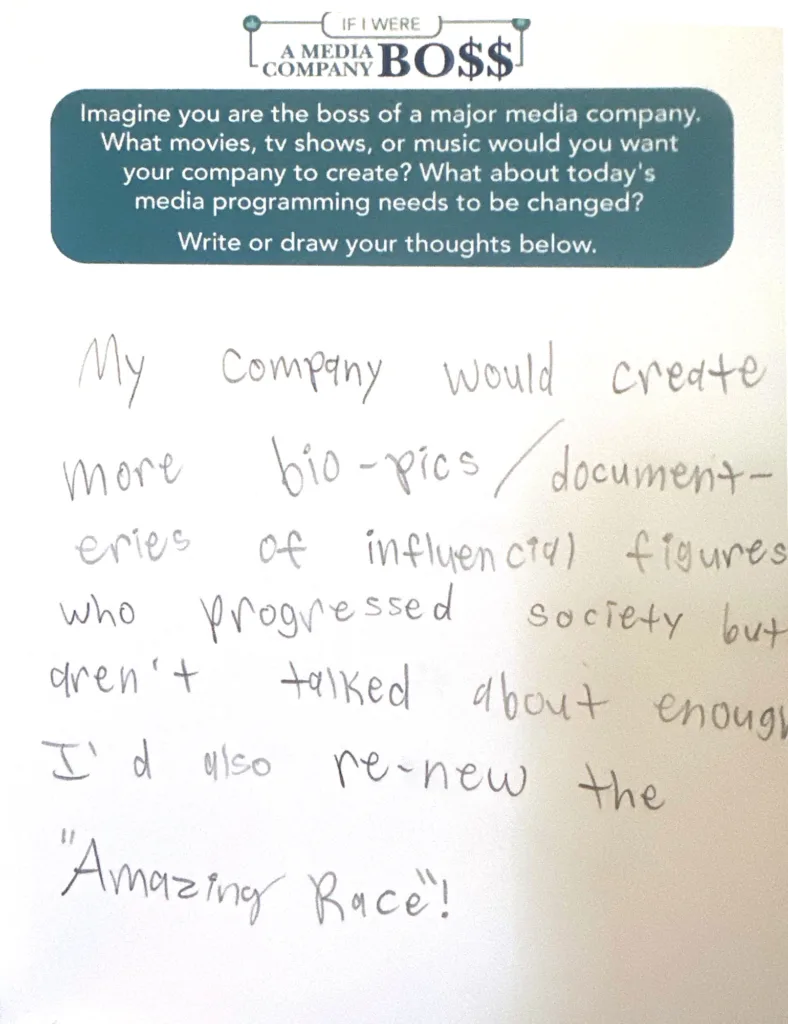 IF I WERE
A MEDIA
COMPANY BO$$
Imagine you are the boss of a major media company.
What movies, tv shows, or music would you want
your company to create? What about today's
media programming needs to be changed?
Write or draw your thoughts below.
My company would create
more bio-pics/document-
eries of influencial figures
who progressed society but
aren't talked about enough
I'd also re-new the
"Amazing Race"!